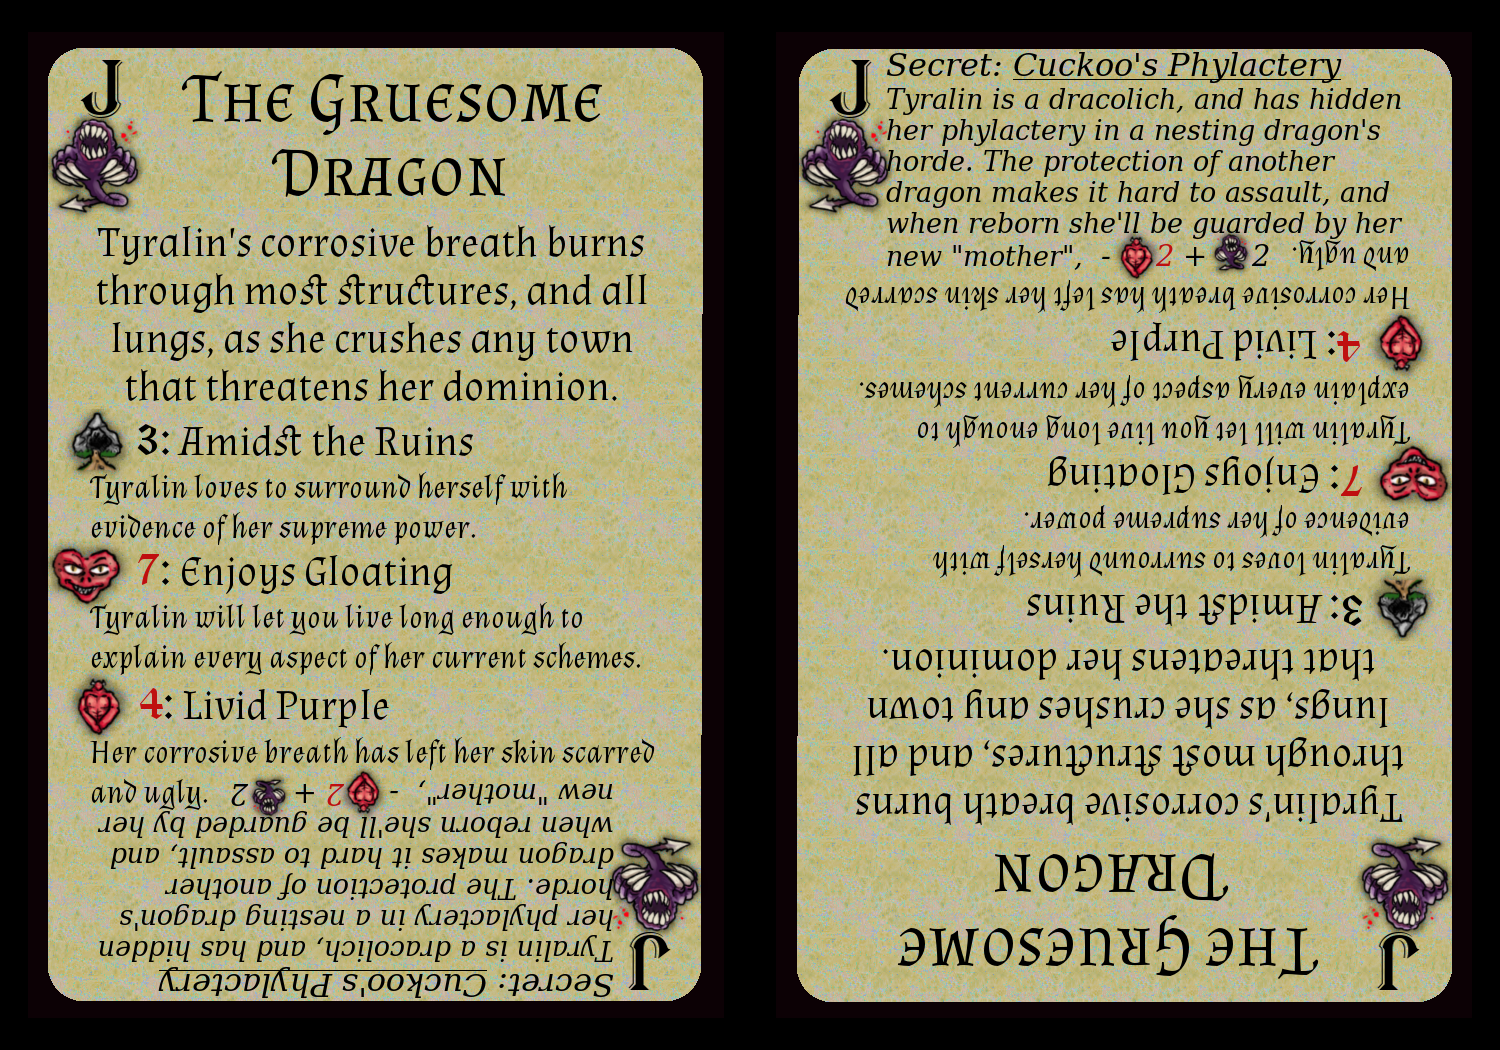 J
The Gruesome
Dragon
Tyralin's corrosive breath burns
through most structures, and all
lungs, as she crushes any town
that threatens her dominion.
3: Amidst the Ruins
Tyralin loves to surround herself with
evidence of her supreme power.
7: Enjoys Gloating
Tyralin will let you live long enough to
explain every aspect of her current schemes.
4: Livid Purple
Her corrosive breath has left her skin scarred
and ugly.
J
Secret: Cuckoo's Phylactery
Tyralin is a dracolich, and has hidden
her phylactery in a nesting dragon's
horde. The protection of another
dragon makes it hard to assault, and
when reborn she'll be guarded by her
new "mother", - 2 + 2
J
Secret: Cuckoo's Phylactery
Tyralin is a dracolich, and has hidden
her phylactery in a nesting dragon's
horde. The protection of another
dragon makes it hard to assault, and
when reborn she'll be guarded by her
new "mother", - 2 + 2
J
The Gruesome
Dragon
Tyralin's corrosive breath burns
through most structures, and all
lungs, as she crushes any town
that threatens her dominion.
3: Amidst the Ruins
Tyralin loves to surround herself with
evidence of her supreme power.
7: Enjoys Gloating
Tyralin will let you live long enough to
explain every aspect of her current schemes.
4: Livid Purple
Her corrosive breath has left her skin scarred
and ugly.